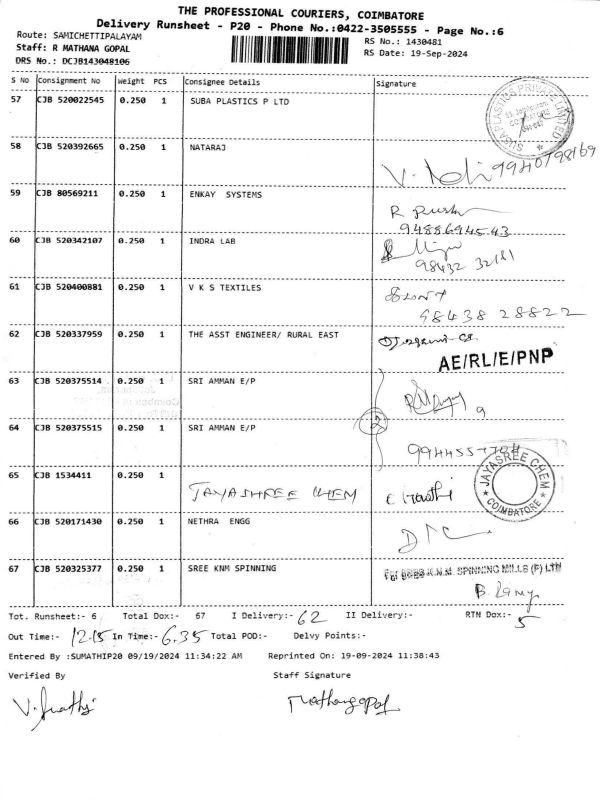 THE PROFESSIONAL COURIERS, COIMBATORE
Delivery Runsheet - P20 - Phone No.:0422-3505555 - Page No.:6
Route: SAMICHETTIPALAYAM
RS No.: 1430481
Staff: R MATHANA GOPAL
RS Date: 19-Sep-2024
DRS No.: DCJB143048106
S No Consignment No Weight PCS Consignee Details Signature
57 CJB 520022545 0.250 1 SUBA PLASTICS P LTD
SUBA PLASTICS PRIVATE LIMITED
58 CJB 520392665 0.250 1 NATARAJ
9940798169
59 CJB 80569211 0.250 1 ENKAY SYSTEMS
9488694543
60 CJB 520342107 0.250 1 INDRA LAB
98432 32181
61 CJB 520400881 0.250 1 V K S TEXTILES
98438 28822
62 CJB 520337959 0.250 1 THE ASST ENGINEER/ RURAL EAST
AE/RL/E/PNP
63 CJB 520375514 0.250 1 SRI AMMAN E/P
2
64 CJB 520375515 0.250 1 SRI AMMAN E/P
65 CJB 1534411 0.250 1 JAYASHREE CHEM
JAYASREE CHEM
COIMBATORE
66 CJB 520171430 0.250 1 NETHRA ENGG
67 CJB 520325377 0.250 1 SREE KNM SPINNING
For SREE K.N.M. SPINNING MILLS (P) LTD
Tot. Runsheet:- 6 Total Dox:- 67 I Delivery:- 62 II Delivery:- RTN Dox:- 5
Out Time:- 12.15 In Time:- 6.35 Total POD:- Delvy Points:-
Entered By :SUMATHIP20 09/19/2024 11:34:22 AM Reprinted On: 19-09-2024 11:38:43
Verified By Staff Signature
Mathanagopal